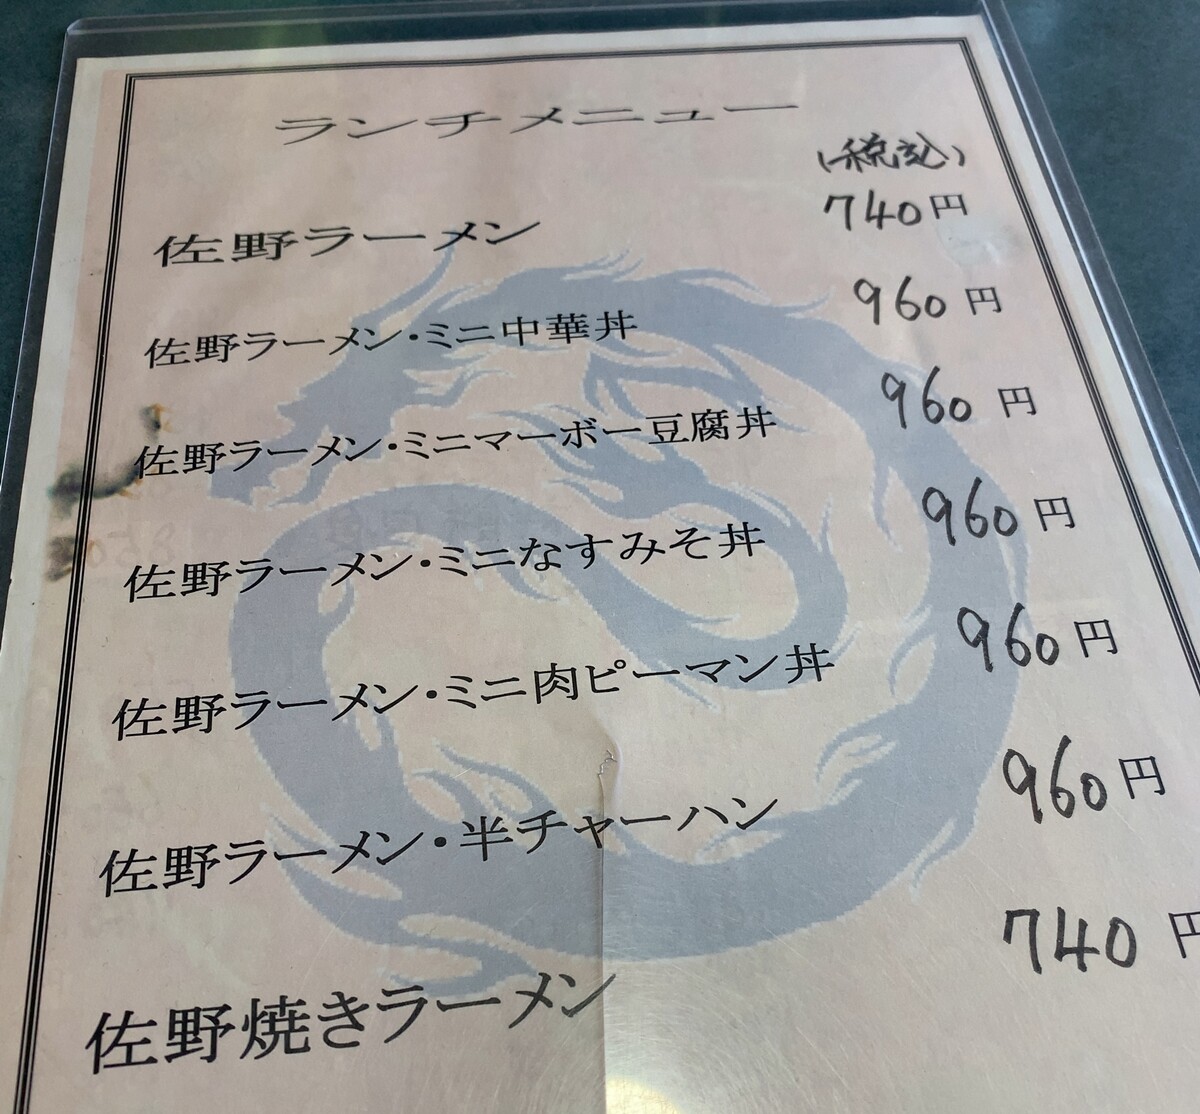 ランチメニュー
(税込)
佐野ラーメン 740円
佐野ラーメン・ミニ中華丼 960円
佐野ラーメン・ミニマーボー豆腐丼 960円
佐野ラーメン・ミニなすみそ丼 960円
佐野ラーメン・ミニ肉ピーマン丼 960円
佐野ラーメン・半チャーハン 960円
佐野焼きラーメン 740円